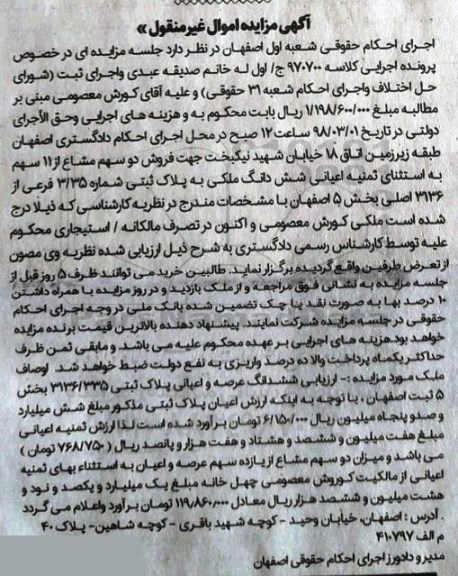 آگهی مزایده اموال غیر منقول »
اجرای احکام حقوقی شعبه اول اصفهان در نظر دارد جلسه مزایده ای در خصوص
پرونده اجرایی کلاسه ۹۷۰۷۰۰ ج/ اول له خانم صدیقه عبدی واجرای ثبت (شورای
حل اختلاف واجرای احکام شعبه ۳۱ حقوقی) و علیه آقای کورش معصومی مبنی بر
مطالبه مبلغ ۱/۱۹۸/۶۰۰/۰۰۰ ریال بابت محکوم به و هزینه های اجرایی وحق الأجرای
دولتی در تاریخ ۹۸/۰۳/۰۱ ساعت ۱۲ صبح در محل اجرای احکام دادگستری اصفهان
طبقه زیرزمین اتاق ۱۸ خیابان شهید نیکبخت جهت فروش دو سهم مشاع از ۱۱ سهم
به استثنای ثمنیه اعیانی شش دانگ ملکی به پلاک ثبتی شماره ۳/۳۵ فرعی از
۳۱۳۶ اصلی بخش ۵ اصفهان با مشخصات مندرج در نظریه کارشناسی که ذیلا درج
شده است ملکی کورش معصومی و اکنون در تصرف مالکانه / استیجاری محکوم
علیه توسط کارشناس رسمی دادگستری به شرح ذیل ارزیابی شده نظریه وی مصون
از تعرض طرفین واقع گردیده برگزار نماید. طالبین خرید می توانند ظرف ۵ روز قبل از
جلسه مزایده به نشانی فوق مراجعه و از ملک بازدید و در روز مزایده با همراه داشتن
۱۰ درصد بها به صورت نقد یا چک تضمین شده بانک ملی در وجه اجرای احکام
حقوقی در جلسه مزایده شرکت نمایند. پیشنهاد دهنده بالاترین قیمت برنده مزایده
خواهد بود.هزینه های اجرایی بر عهده محکوم علیه می باشد و مابقی ثمن ظرف
حداکثر یکماه پرداخت والا ده درصد واریزی به نفع دولت ضبط خواهد شد. اوصاف
ملک مورد مزایده :- ارزیابی ششدانگ عرصه و اعیانی پلاک ثبتی ۳۱۳۶/۳۳۵ بخش
۵ ثبت اصفهان ، با توجه به اینکه ارزش اعیان پلاک ثبتی مذکور مبلغ شش میلیارد
و صدو پنجاه میلیون ریال ۶/۱۵۰/۰۰۰ تومان برآورد شده است لذا ارزش ثمنیه اعیانی
مبلغ هفت میلیون و ششصد و هشتاد و هفت هزار و پانصد ریال ( ۷۶۸/۷۵۰ تومان )
می باشد و میزان دو سهم مشاع از یازده سهم عرصه و اعیان به استثناء بهای ثمنیه
اعیانی از مالکیت کوروش معصومی چهل خانه مبلغ یک میلیارد و یکصد و نود و
هشت میلیون و ششصد هزار ریال معادل ۱۱۹٫۸۶۰٫۰۰۰ تومان برآورد واعلام می گردد
. آدرس : اصفهان، خیابان وحید - کوچه شهید باقری - کوچه شاهین- پلاک ۴۰
م الف ۴۱۰۷۹۷
مدیر و دادورز اجرای احکام حقوقی اصفهان